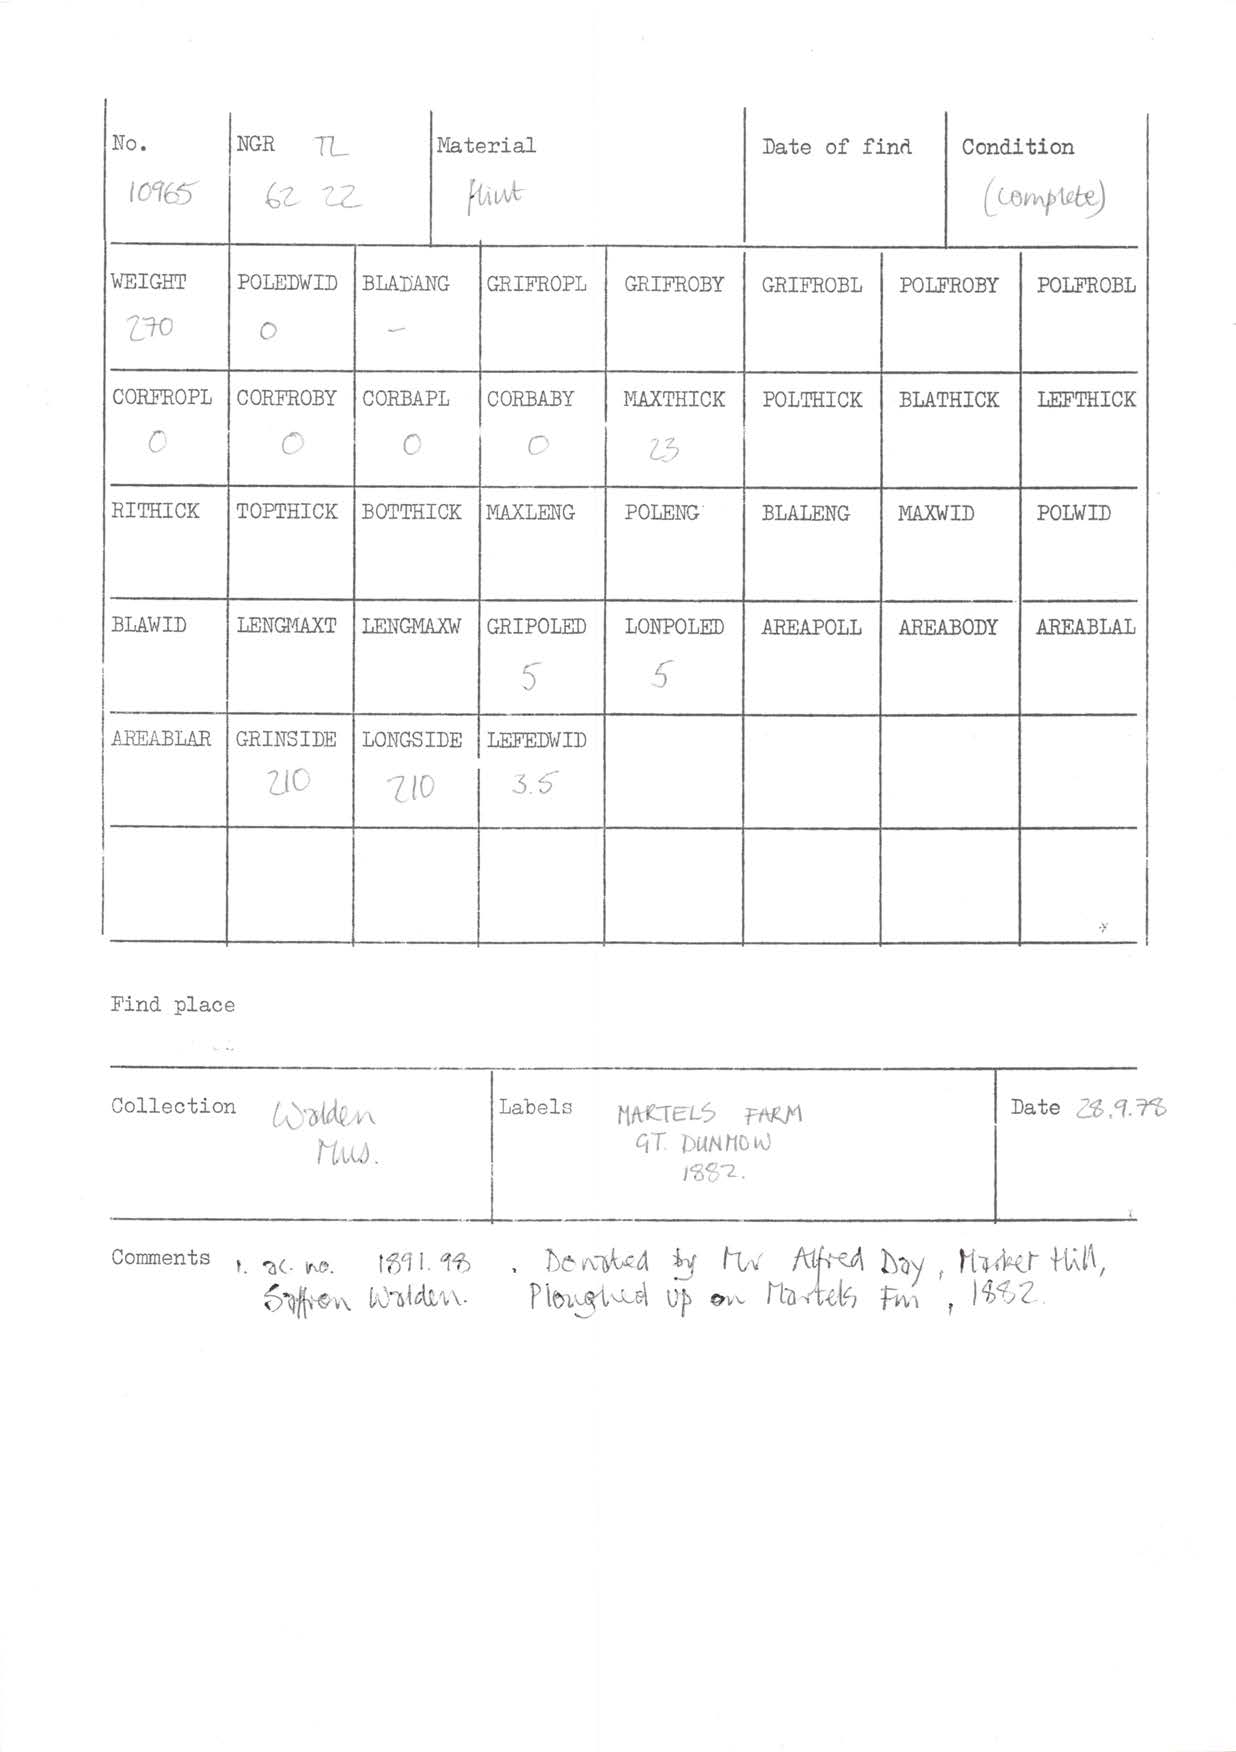 No. NGR TL Material Date of find Condition
10965 62 22 flint (complete)
WEIGHT POLEDWID BLADANG GRIFROPL GRIFROBY GRIFROBL POLFROBY POLFROBL
270 0 –
CORFROPL CORFROBY CORBAPL CORBABY MAXTHICK POLTHICK BLATHICK LEFTHICK
0 0 0 0 23
RITHICK TOPTHICK BOTTHICK MAXLENG POLENG BLALENG MAXWID POLWID
BLAWID LENGMAXT LENGMAXW GRIPOLED LONPOLED AREAPOLL AREABODY AREABLAL
5 5
AREABLAR GRINSIDE LONGSIDE LEFEDWID
210 210 3.5
Find place
Collection Walden
Mus.
Labels MARTELS FARM
GT. DUNMOW
1882.
Date 28.9.78
Comments 1. ac. no. 1891.98 . Donated by Mr Alfred Day, Market Hill,
Saffron Walden. Ploughed up on Martels Fm, 1882.